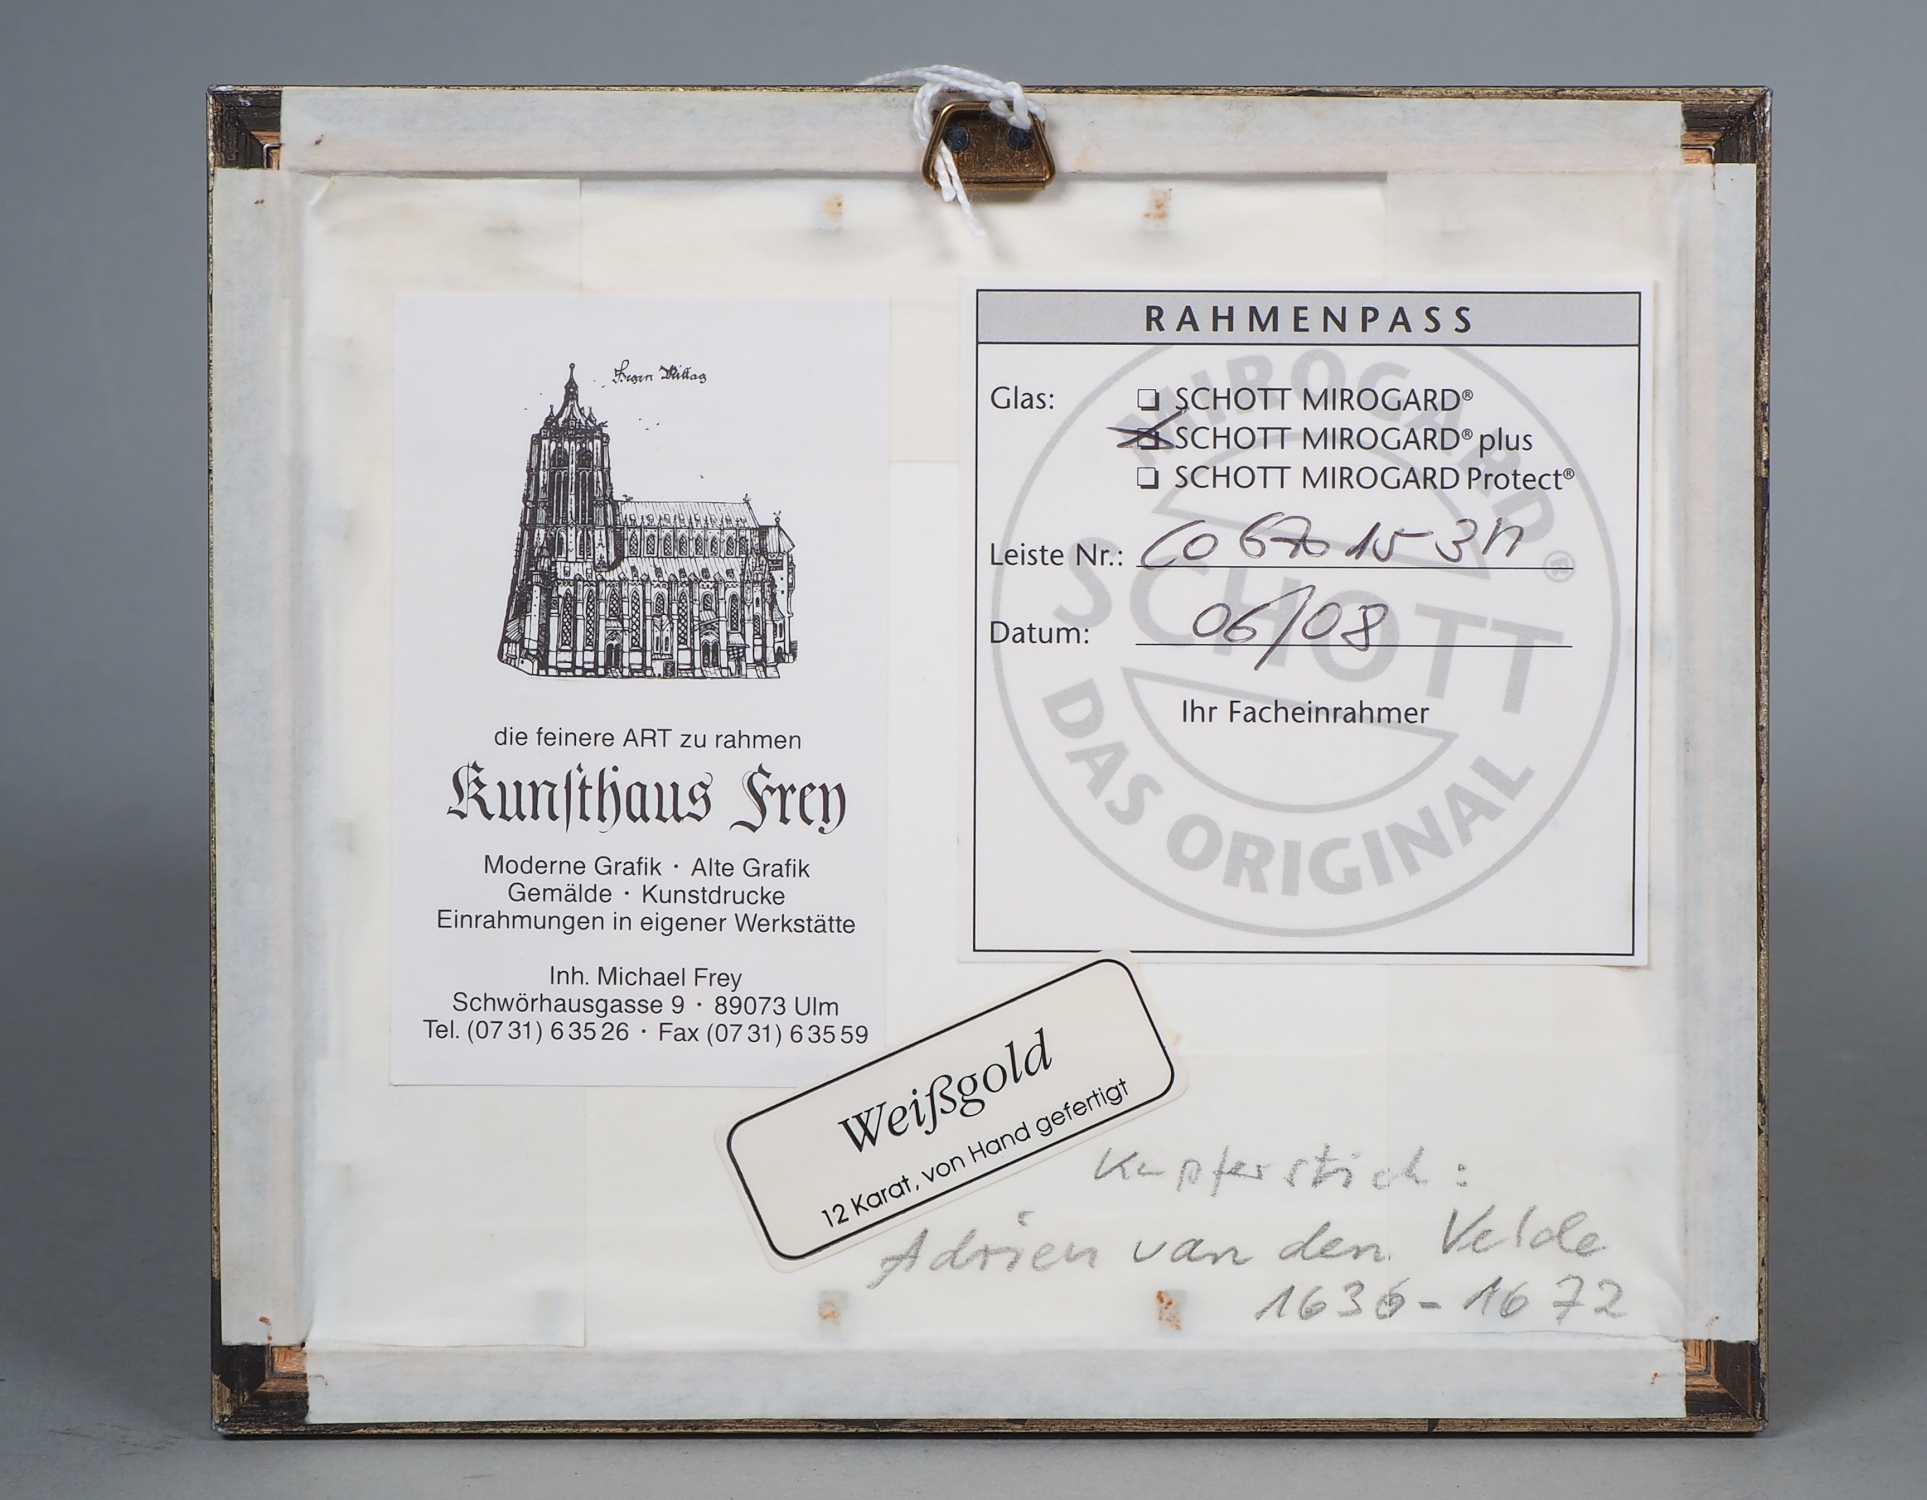 Gegen Mittag
die feinere ART zu rahmen
Kunsthaus Frey
Moderne Grafik · Alte Grafik
Gemälde · Kunstdrucke
Einrahmungen in eigener Werkstätte
Inh. Michael Frey
Schwörhausgasse 9 · 89073 Ulm
Tel. (07 31) 6 35 26 · Fax (07 31) 6 35 59
RAHMENPASS
Glas:
SCHOTT MIROGARD®
SCHOTT MIROGARD® plus
SCHOTT MIROGARD Protect®
Leiste Nr.:
Datum: 06/08
Ihr Facheinrahmer
MIROGARD®
SCHOTT
DAS ORIGINAL
Weißgold
12 Karat, von Hand gefertigt
Kupferstich:
Adrien van den Velde
1636 - 1672